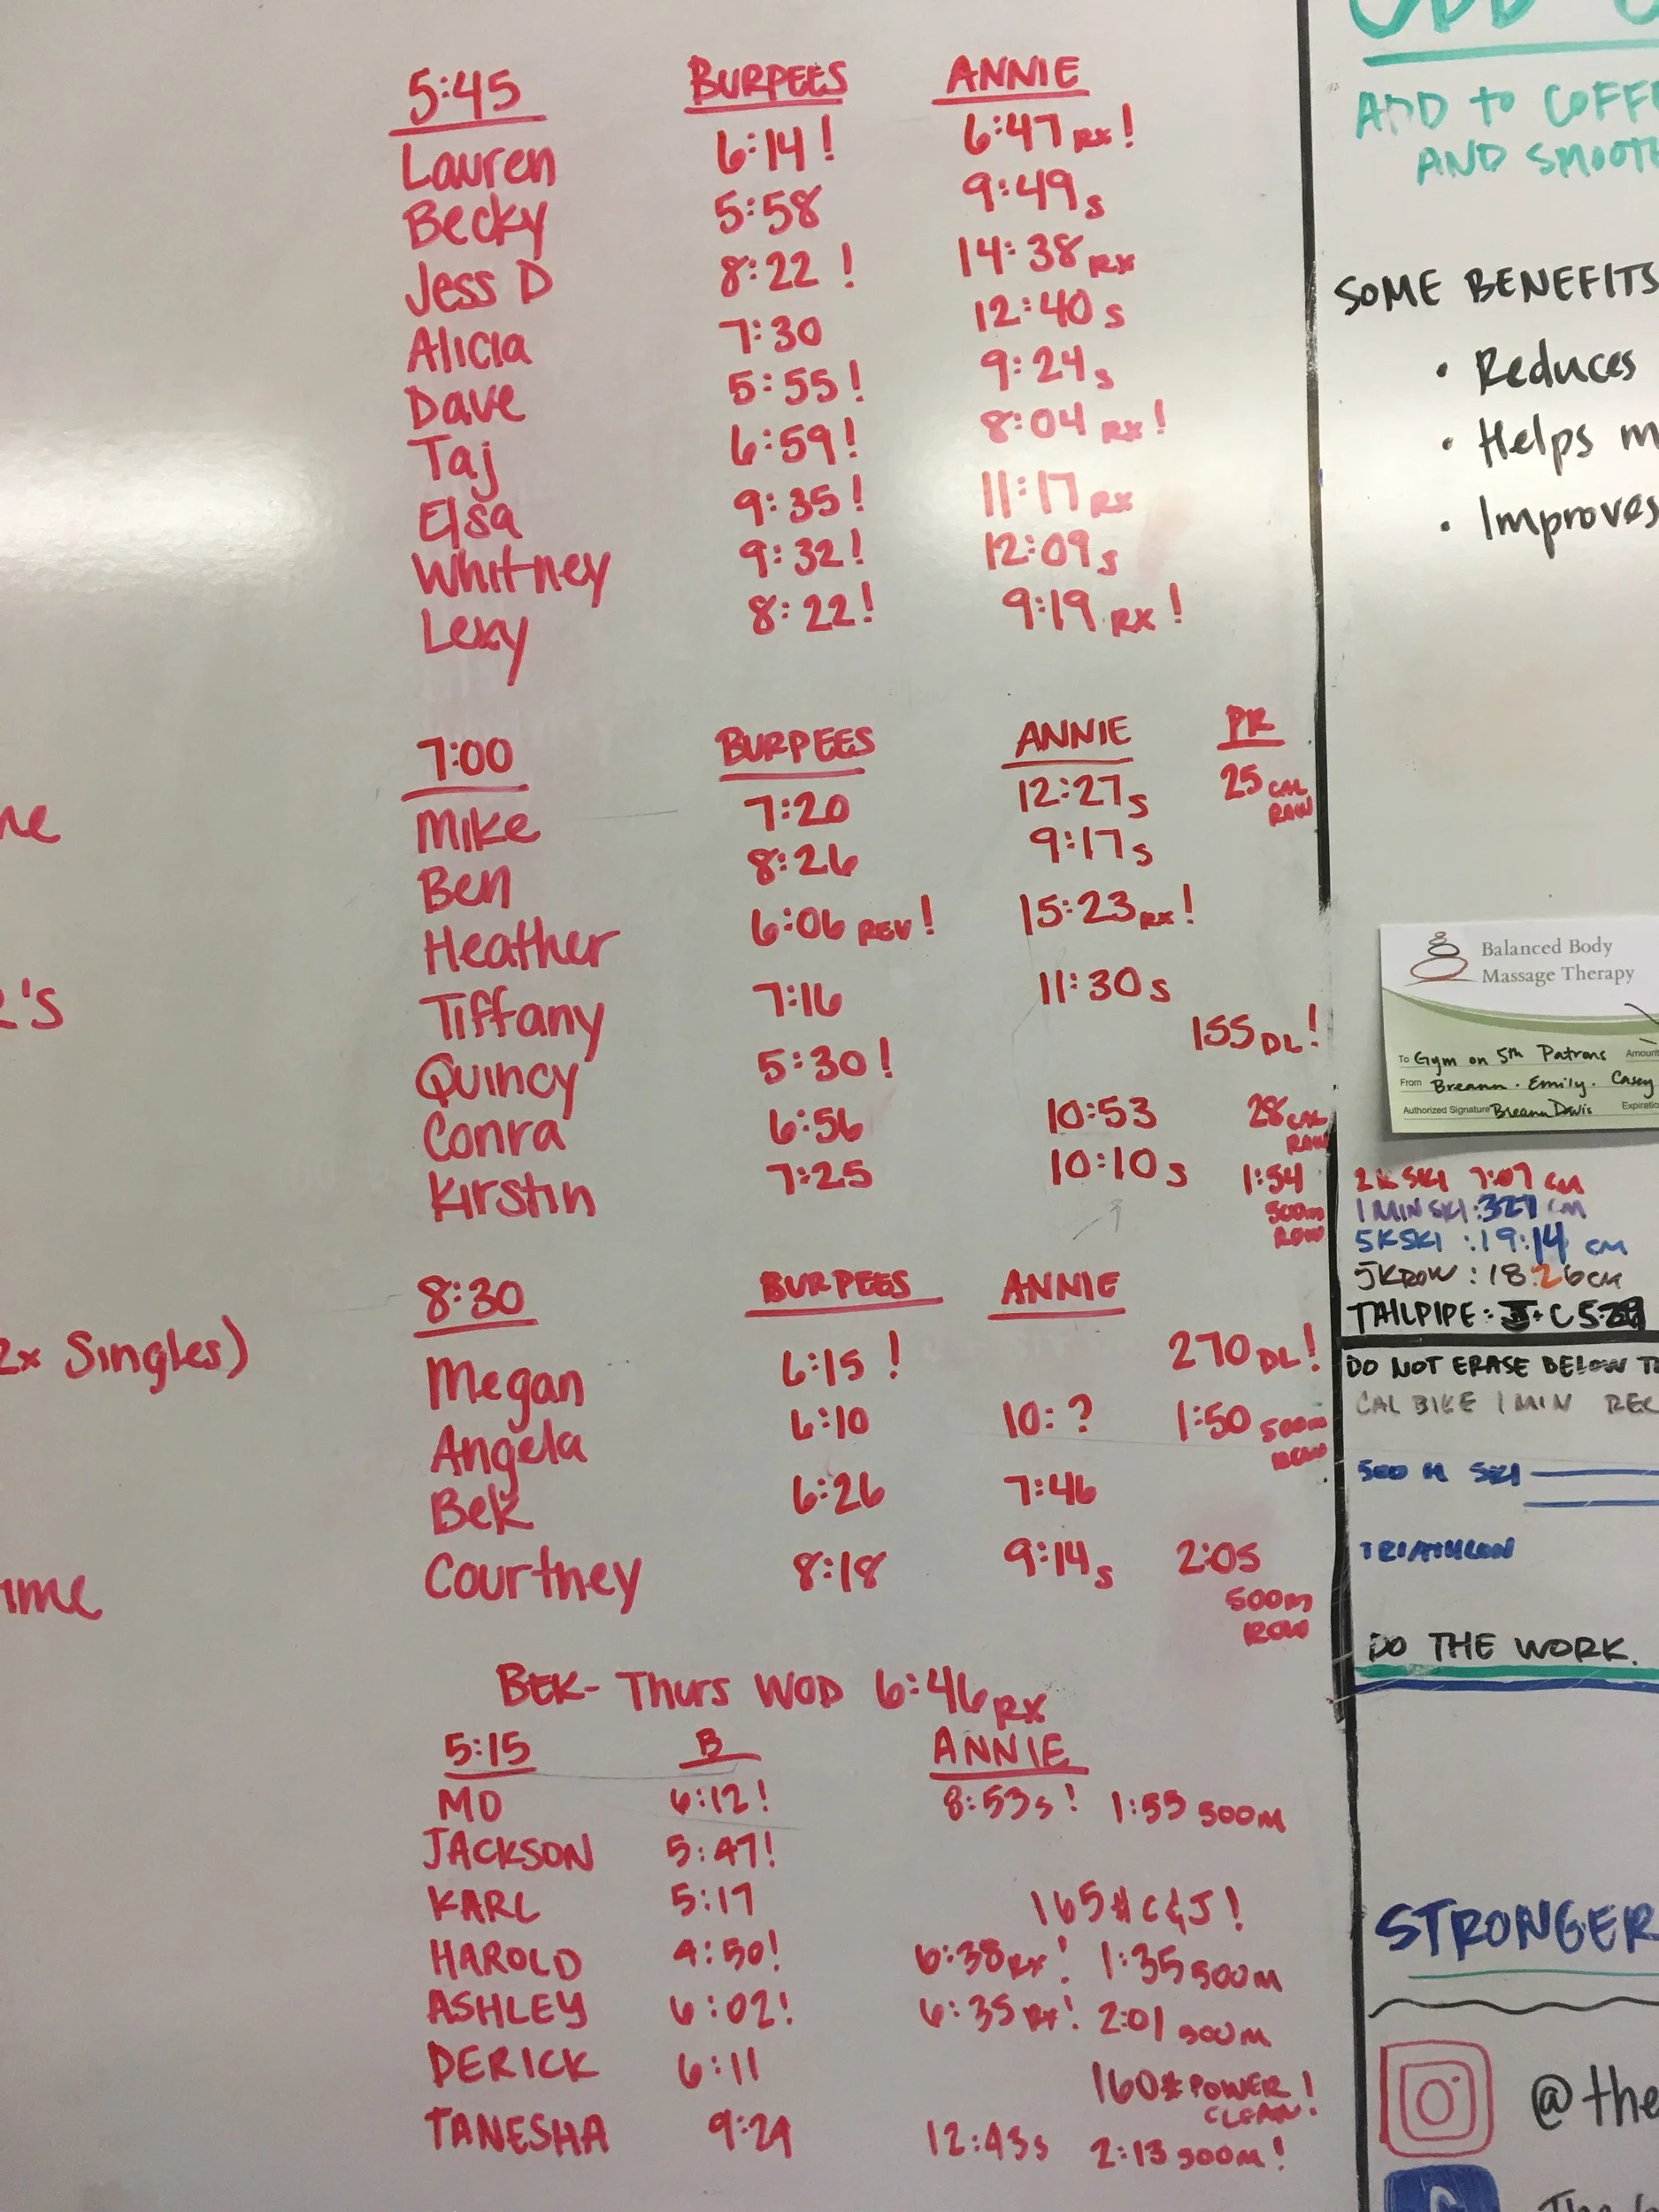 5:45 BURPEES ANNIE
Lauren 6:14! 6:47 RX!
Becky 5:58 9:49 s
Jess D 8:22! 14:38 RX
Alicia 7:30 12:40 s
Dave 5:55! 9:24 s
Taj 6:59! 8:04 RX!
Elsa 9:35! 11:17 RX
Whitney 9:32! 12:09 s
Lexy 8:22! 9:19 RX!
7:00 BURPEES ANNIE PR
Mike 7:20 12:27 s 25 CAL
ROW
Ben 8:26 9:17 s
Heather 6:06 REV! 15:23 RX!
Tiffany 7:16 11:30 s
Quincy 5:30! 155 DL!
Conra 6:56 10:53 28 CAL
ROW
Kirstin 7:25 10:10 s 1:54
500m
ROW
8:30 BURPEES ANNIE
Megan 6:15! 270 DL!
Angela 6:10 10:? 1:50 500m
ROW
Bek 6:26 7:46
Courtney 8:18 9:14 s 2:05
500m
ROW
BEK- Thurs WOD 6:46 RX
5:15 B ANNIE
MD 6:12! 8:53 s! 1:55 500M
JACKSON 5:47!
KARL 5:17 165# C&J!
HAROLD 4:50! 6:38 RX! 1:35 500M
ASHLEY 6:02! 6:35 RX! 2:01 500M
DERICK 6:11 160# POWER!
CLEAN!
TANESHA 9:29 12:43 s 2:13 500M!
2x Singles)
ADD to COFFE
AND SMOOTH
SOME BENEFITS
• Reduces
• Helps m
• Improves
Balanced Body
Massage Therapy
To Gym on 5th Patrons Amount
From Breann · Emily · Casey
Authorized Signature Breann Davis Expiratio
2K SKI 7:07 CM
1 MIN SKI: 327 CM
5K SKI: 19:14 CM
5K ROW: 18:26 CM
TAILPIPE:
DO NOT ERASE BELOW
CAL BIKE 1 MIN REC
500 M SKI
TRIATHLON
DO THE WORK.
STRONGER
@the